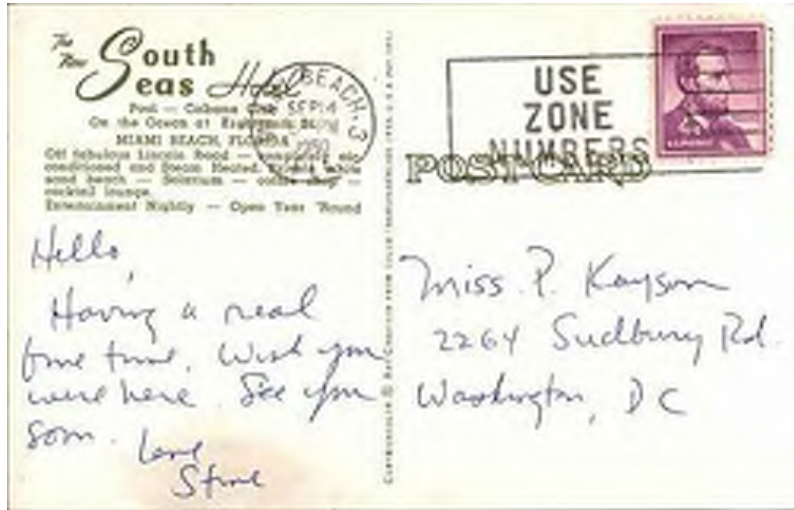 The New South Seas Hotel
Pool — Cabana Club
On the Ocean at Eighteenth St.
MIAMI BEACH, FLORIDA
Off fabulous Lincoln Road — completely air
conditioned and Steam Heated. Private white
sand beach — Solarium — coffee shop —
cocktail lounge.
Entertainment Nightly — Open Year 'Round
BEACH, 3
SEP 14
PM
USE
ZONE
NUMBERS
4¢
POST CARD
Hello,
Having a real
fine time. Wish you
were here. See you
soon. Love
Steve
Miss. P. Kayson
2264 Sudbury Rd.
Washington, DC